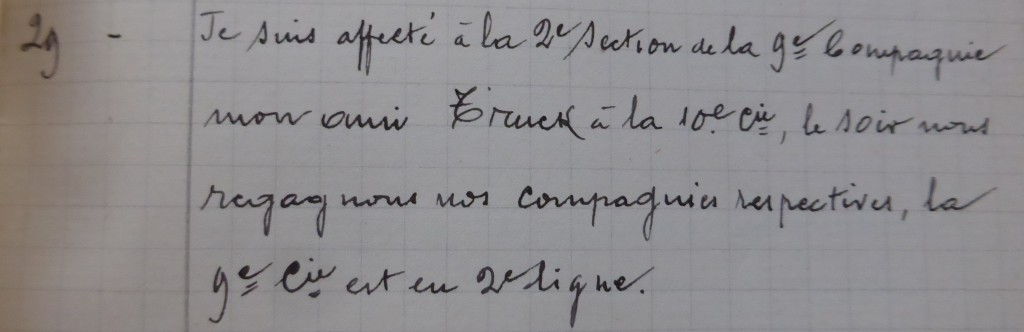 29 - Je suis affecté à la 2e Section de la 9e Compagnie
mon ami à la 10e Cie, le soir nous
regagnons nos compagnies respectives, la
9e Cie est en 2e ligne.